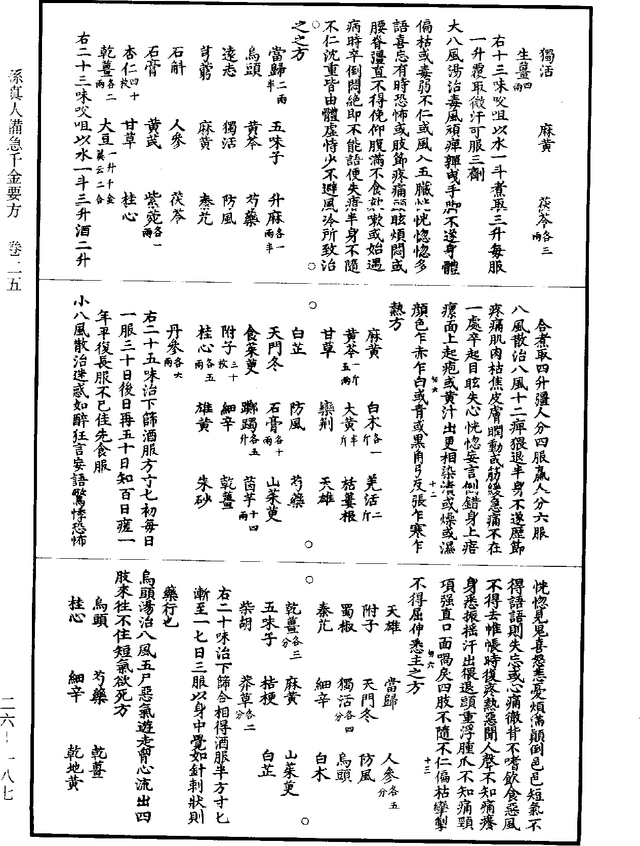 獨活　麻黃　茯苓各三兩
生薑四兩
右十三味㕮咀以水一斗煮取三升每服
一升覆取微汗可服三劑
大八風湯治毒風頑痺嚲曳手腳不遂身體
偏枯或毒弱不仁或風入五臟恍恍惚惚多
語喜忘有時恐怖或肢節疼痛頭眩煩悶或
腰脊彊直不得俛仰腹滿不食欬嗽或始遇
病時卒倒悶絕即不能語便失瘖半身不隨
不仁沈重皆由體虛恃少不避風冷所致治
之之方
當歸二兩半　五味子　升麻各一兩半
烏頭　黃芩　芍藥
遠志　獨活　防風
芎藭　麻黃　秦艽
石斛　人參　茯苓
石膏　黃芪　紫菀各一兩
杏仁四十枚　甘草　桂心
乾薑各二兩　大豆一升千金翼云二合
右二十三味㕮咀以水一斗三升酒二升
合煮取四升彊人分四服羸人分六服
八風散治八風十二痺猥退半身不遂歷節
疼痛肌肉枯焦皮膚瞤動或筋緩急痛不在
一處卒起目眩失心恍惚妄言倒錯身上瘖
瘰面上起皰或黃汁出更相染漬或燥或濕
顏色乍赤乍白或青或黑角弓反張乍寒乍
熱方
麻黃　白朮各一斤　羌活二斤
黃芩一斤五兩　大黃半斤　栝蔞根
甘草　欒荊　天雄
白芷　防風　芍藥
天門冬　石膏各十兩　山茱萸
食茱萸　躑躅各五升　茵芋十四兩
附子三十枚　細辛　乾薑
桂心各五兩　雄黃　朱砂
丹參各六兩
右二十五味治下篩酒服方寸七初每日
一服三十日後日再五十日知百日瘥一
年平復長服不已佳先食服
小八風散治迷惑如醉狂言妄語驚悸恐怖
恍惚見鬼喜怒悲憂煩滿顛倒邑邑短氣不
得語語則失忘或心痛徹背不嗜飲食惡風
不得去帷帳時復疼熱惡聞人聲不知痛癢
身悉振搖汗出猥退頭重浮腫爪不知痛頸
項强直口面喎戾四肢不隨不仁偏枯攣掣
不得屈伸悉主之方
天雄　當歸　人參各五分
附子　天門冬　防風
蜀椒　獨活各四分　烏頭
秦艽　細辛　白朮
乾薑各三分　麻黃　山茱萸
五味子　桔梗　白芷
柴胡　莽草各二分
右二十味治下篩合相得酒服半方寸七
漸至一七日三服以身中覺如針刺狀則
藥行也
烏頭湯治八風五尸惡氣遊走胷心流出四
肢來往不住短氣欲死方
烏頭　芍藥　乾薑
桂心　細辛　乾地黃
孫真人備急千金要方　卷二五
二六－一八七